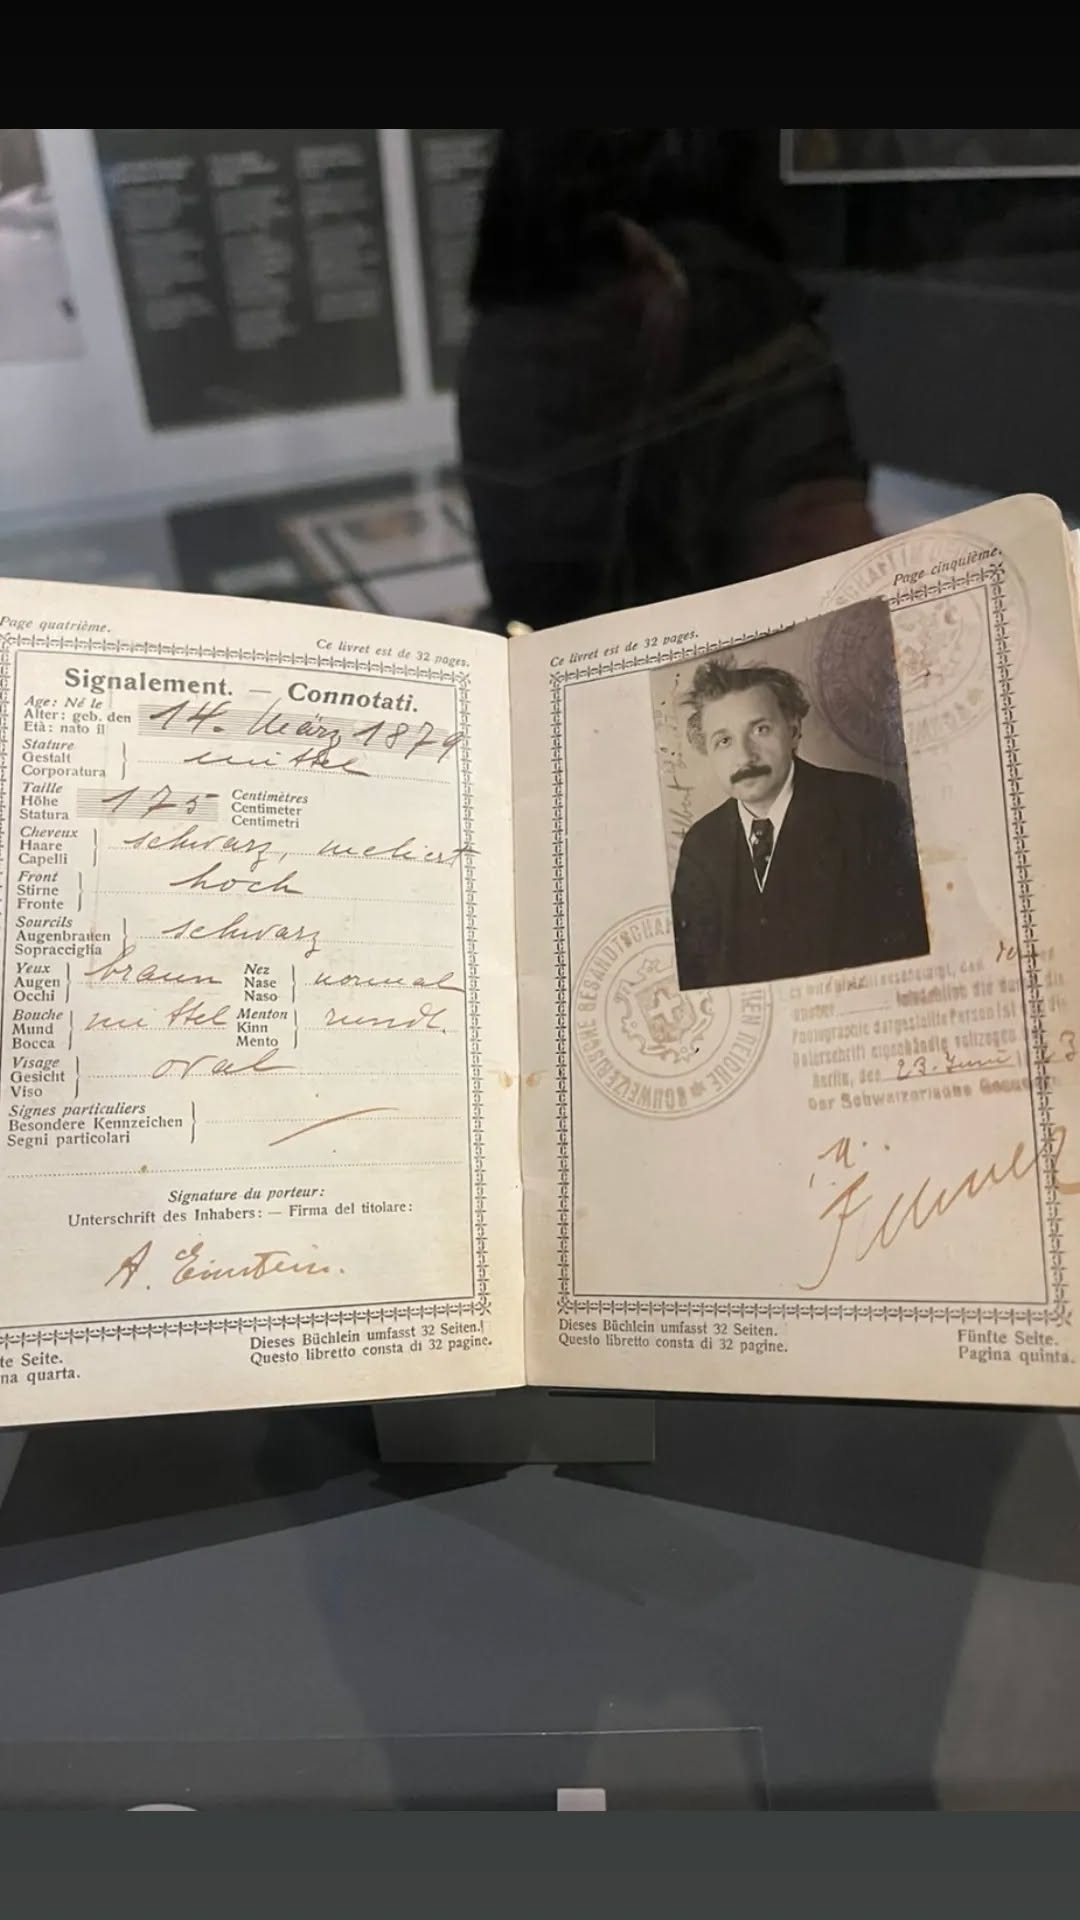 Page quatrième.
Ce livret est de 32 pages.
Signalement. — Connotati.
Age: Né le
Alter: geb. den
Età: nato il
14. März 1879
Stature
Gestalt
Corporatura
mittel
Taille
Höhe
Statura
175
Centimètres
Centimeter
Centimetri
Cheveux
Haare
Capelli
schwarz, meliert
Front
Stirne
Fronte
hoch
Sourcils
Augenbrauen
Sopracciglia
schwarz
Yeux
Augen
Occhi
braun
Nez
Nase
Naso
normal
Bouche
Mund
Bocca
mittel
Menton
Kinn
Mento
rundl.
Visage
Gesicht
Viso
oval
Signes particuliers
Besondere Kennzeichen
Segni particolari
Signature du porteur:
Unterschrift des Inhabers: — Firma del titolare:
A. Einstein.
te Seite.
na quarta.
Dieses Büchlein umfasst 32 Seiten.
Questo libretto consta di 32 pagine.
Page cinquième.
Ce livret est de 32 pages.
Albert
SCHWEIZERISCHE GESANDTSCHAF
EN REICHE
die
Photographie dargestellte Person ist
Unterschrift eigenhändig vollzogen
Berlin, den 23. Juni
Der Schweizerische
Dieses Büchlein umfasst 32 Seiten.
Questo libretto consta di 32 pagine.
Fünfte Seite.
Pagina quinta.